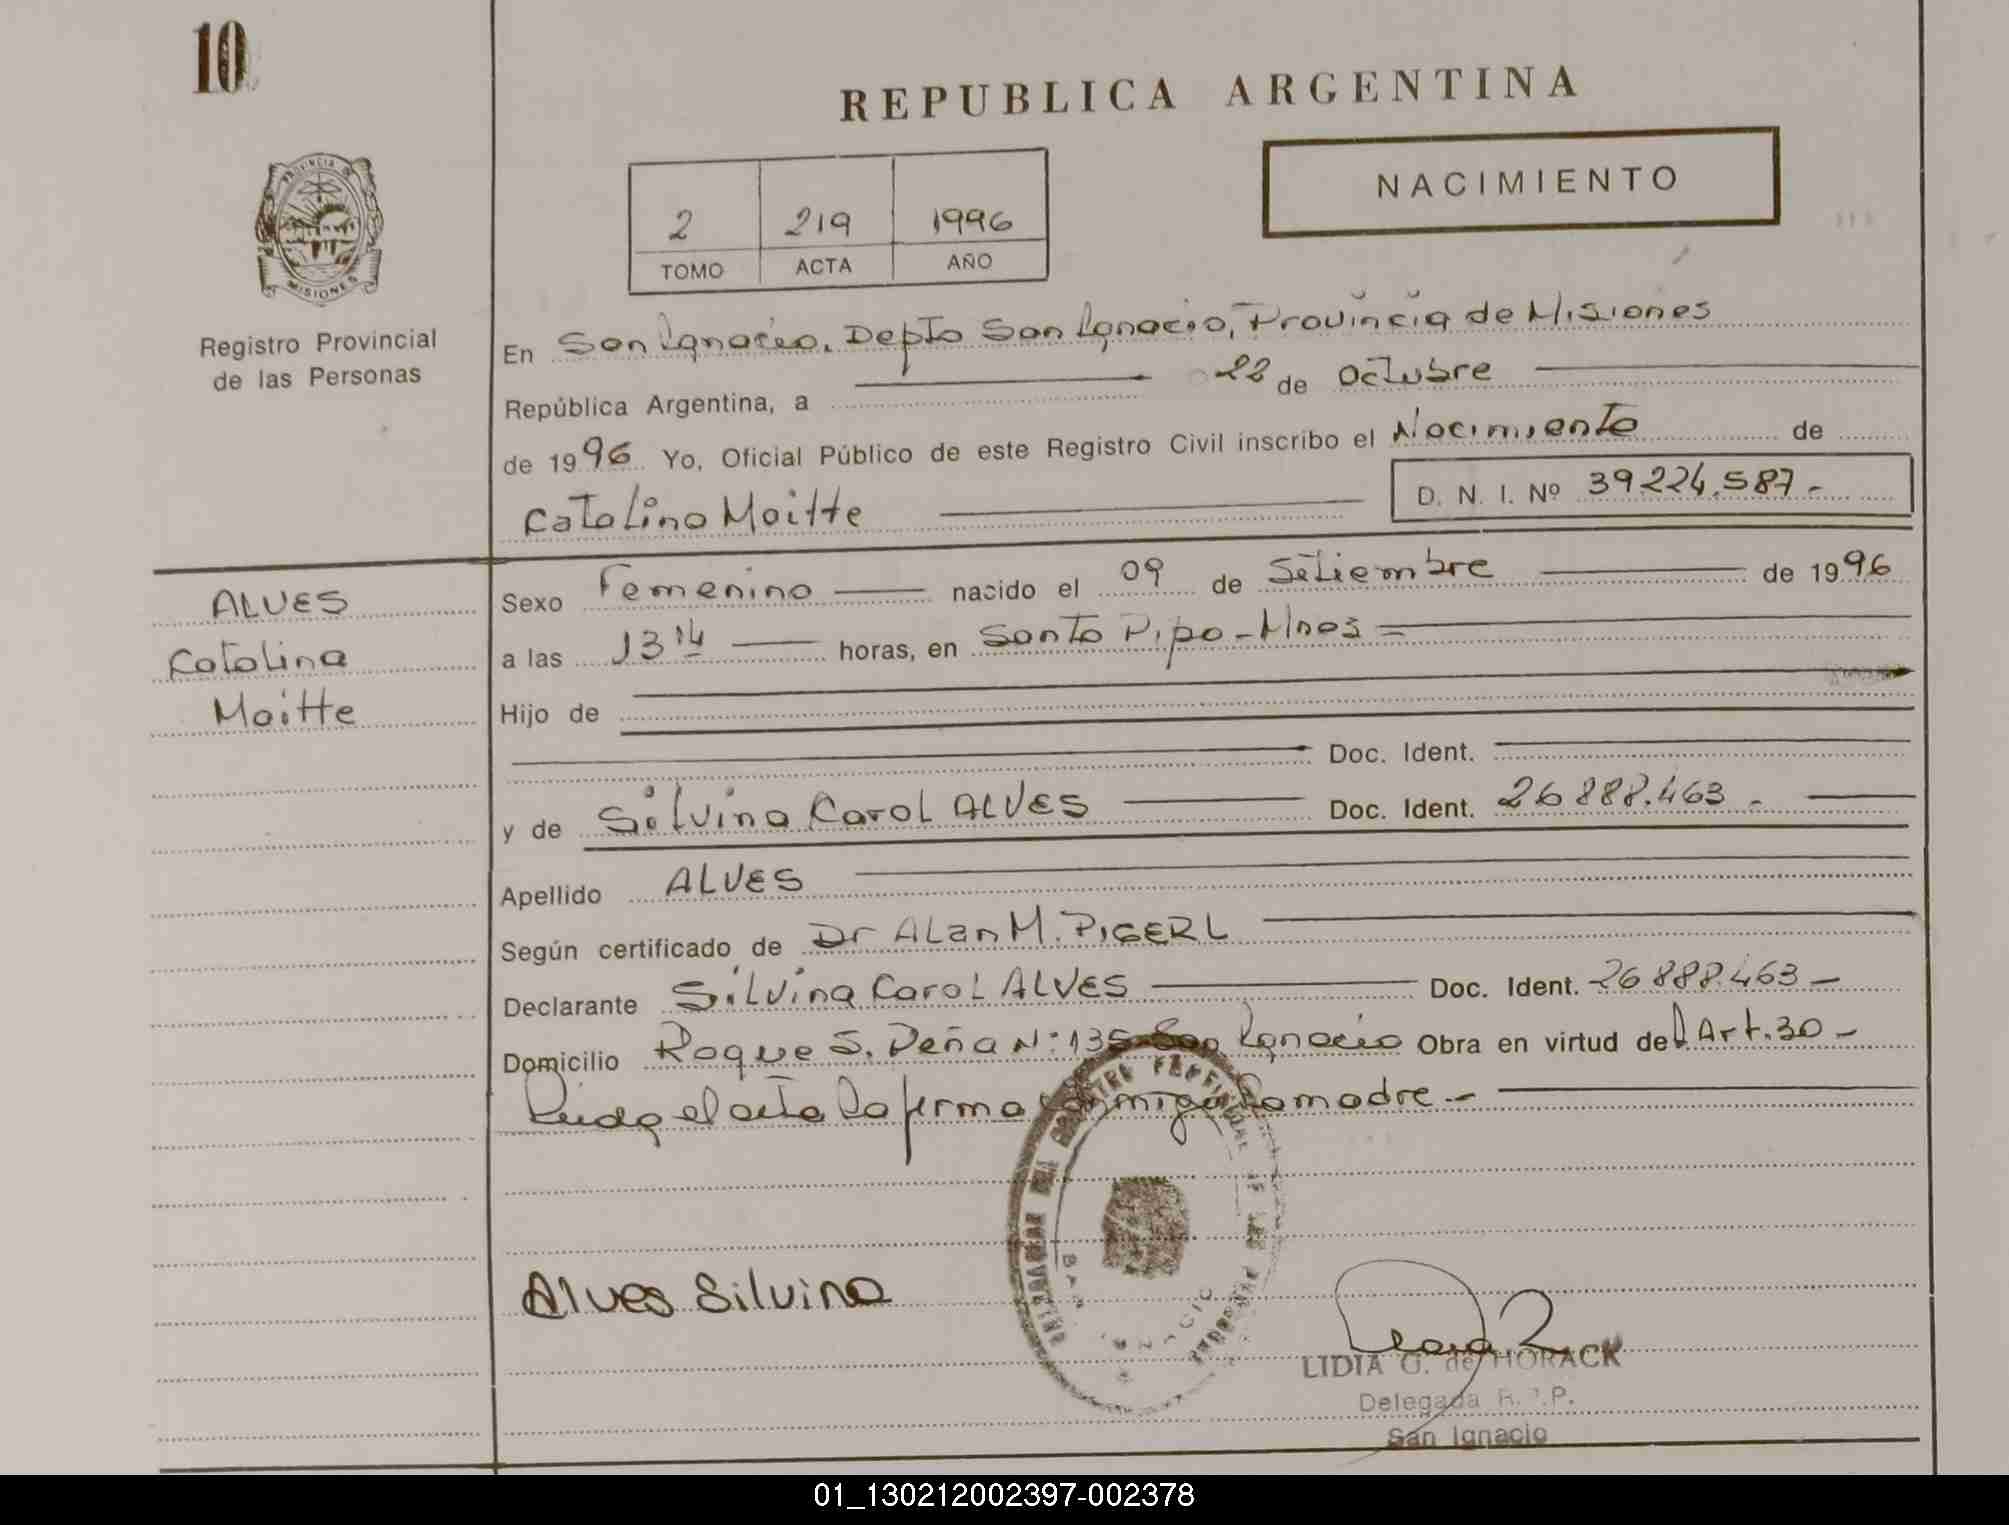 10
REPUBLICA ARGENTINA
NACIMIENTO
2 219 1996
TOMO ACTA AÑO
PROVINCIA DE
MISIONES
Registro Provincial
de las Personas
En San Ignacio, Depto San Ignacio, Provincia de Misiones
República Argentina, a 22 de Octubre
de 1996 Yo, Oficial Público de este Registro Civil inscribo el Nacimiento de
Catalina Maitte D. N. I. Nº 39.224.587.-
ALVES
Catalina
Maitte
Sexo Femenino nacido el 09 de Setiembre de 1996
a las 13 14 horas, en Santo Pipo - Mnes =
Hijo de
Doc. Ident.
y de Silvina Carol ALVES Doc. Ident. 26888.463 -
Apellido ALVES
Según certificado de Dr Alan M. PIGERL
Declarante Silvina Carol ALVES Doc. Ident. 26888.463 -
Domicilio Roque S. Peña Nº 135 San Ignacio Obra en virtud del Art. 30 -
Leida el acta la firma conmigo la madre -
Alves Silvina
LIDIA G. de HORACK
Delegada R. P.
San Ignacio
01_130212002397-002378